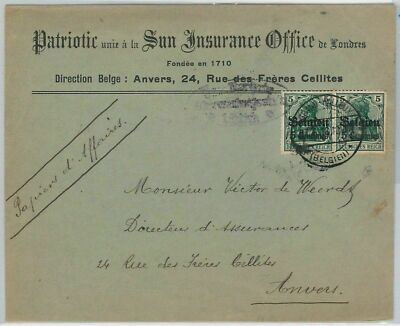 Patriotic unie à la Sun Insurance Office de Londres
Fondée en 1710
Direction Belge : Anvers, 24, Rue des Frères Cellites
5 5
Belgien Belgien
5 Centimes
DEUTSCHES REICH
(BELGIEN)
Papiers d'Affaires.
Monsieur Victor de Weerdt
Directeur d'Assurances
24 Rue des Frères Cellites
Anvers.